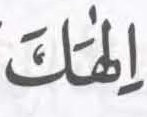 اِلٰهَكَ